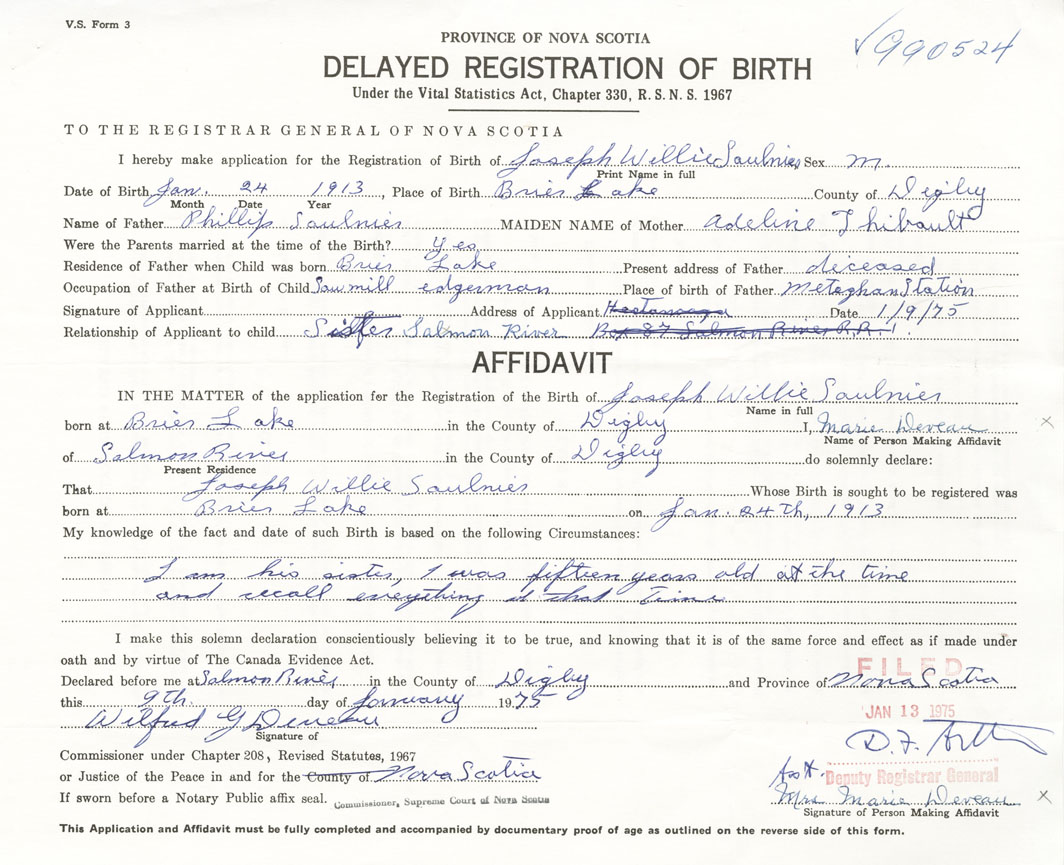 V.S. Form 3
PROVINCE OF NOVA SCOTIA
✓990524
DELAYED REGISTRATION OF BIRTH
Under the Vital Statistics Act, Chapter 330, R.S.N.S. 1967
TO THE REGISTRAR GENERAL OF NOVA SCOTIA
I hereby make application for the Registration of Birth of Joseph Willie Saulnier Sex m.
Print Name in full
Date of Birth Jan. 24 1913, Place of Birth Brier Lake County of Digby
Month Date Year
Name of Father Phillip Saulnier MAIDEN NAME of Mother Adeline Thibault
Were the Parents married at the time of the Birth? Yes
Residence of Father when Child was born Brier Lake Present address of Father diceased
Occupation of Father at Birth of Child Sawmill edgerman Place of birth of Father Meteghan Station
Signature of Applicant Address of Applicant Hectanooga Date 1/9/75
Relationship of Applicant to child Sister Salmon River Box 87 Salmon River R.R.1.
AFFIDAVIT
IN THE MATTER of the application for the Registration of the Birth of Joseph Willie Saulnier
Name in full
born at Brier Lake in the County of Digby I, Marie Deveau x
Name of Person Making Affidavit
of Salmon River in the County of Digby do solemnly declare:
Present Residence
That Joseph Willie Saulnier Whose Birth is sought to be registered was
born at Brier Lake on Jan. 24th, 1913
My knowledge of the fact and date of such Birth is based on the following Circumstances:
I am his sister, I was fifteen years old at the time
and recall everything at that time
I make this solemn declaration conscientiously believing it to be true, and knowing that it is of the same force and effect as if made under
oath and by virtue of The Canada Evidence Act.
FILED
Declared before me at Salmon River in the County of Digby and Province of Nova Scotia
this 9th. day of January 1975
JAN 13 1975
Wilfred G Deveau
Signature of
D.F.
Commissioner under Chapter 208, Revised Statutes, 1967
or Justice of the Peace in and for the County of Nova Scotia
Asst. Deputy Registrar General
If sworn before a Notary Public affix seal. Commissioner, Supreme Court of Nova Scotia
Mrs Marie Deveau x
Signature of Person Making Affidavit
This Application and Affidavit must be fully completed and accompanied by documentary proof of age as outlined on the reverse side of this form.